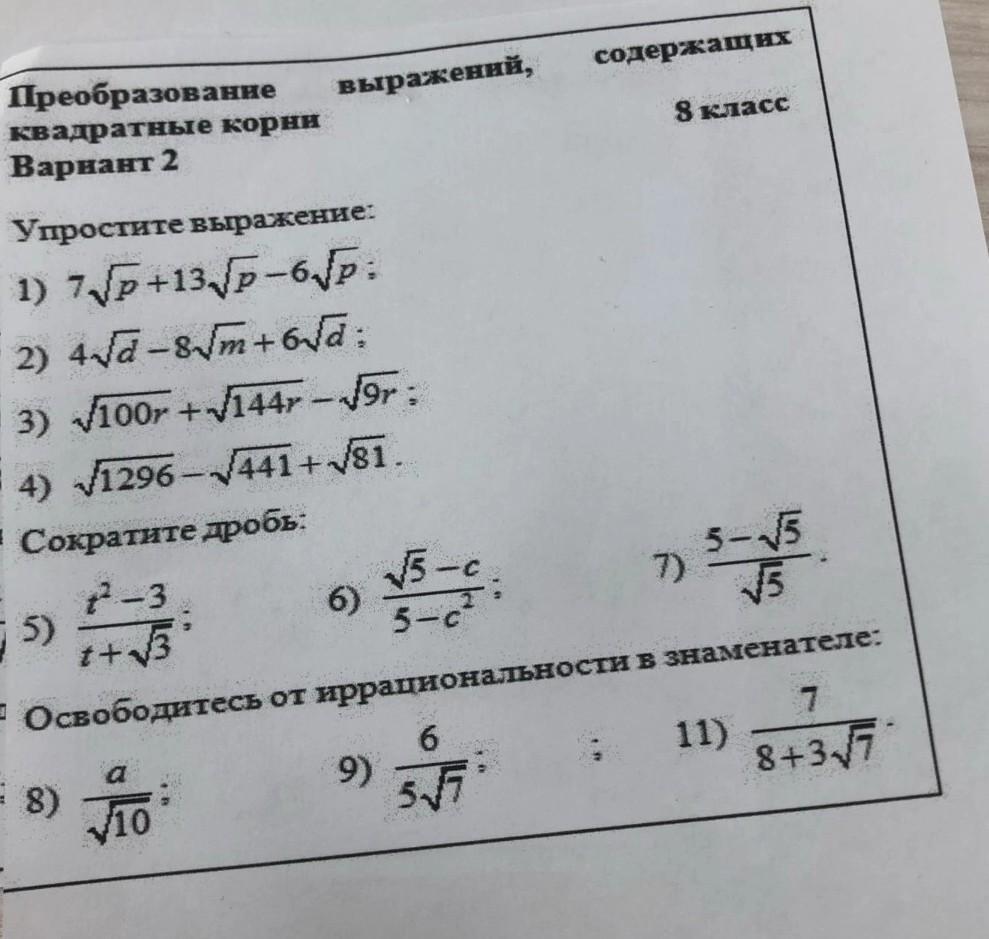 Преобразование выражений, содержащих
квадратные корни 8 класс
Вариант 2
Упростите выражение:
1) 7√p + 13√p − 6√p ;
2) 4√d − 8√m + 6√d ;
3) √100r + √144r − √9r ;
4) √1296 − √441 + √81 .
Сократите дробь:
5) (t² − 3)/(t + √3) ; 6) (√5 − c)/(5 − c²) ; 7) (5 − √5)/√5 .
Освободитесь от иррациональности в знаменателе:
8) a/√10 ; 9) 6/(5√7) ; ; 11) 7/(8 + 3√7) .